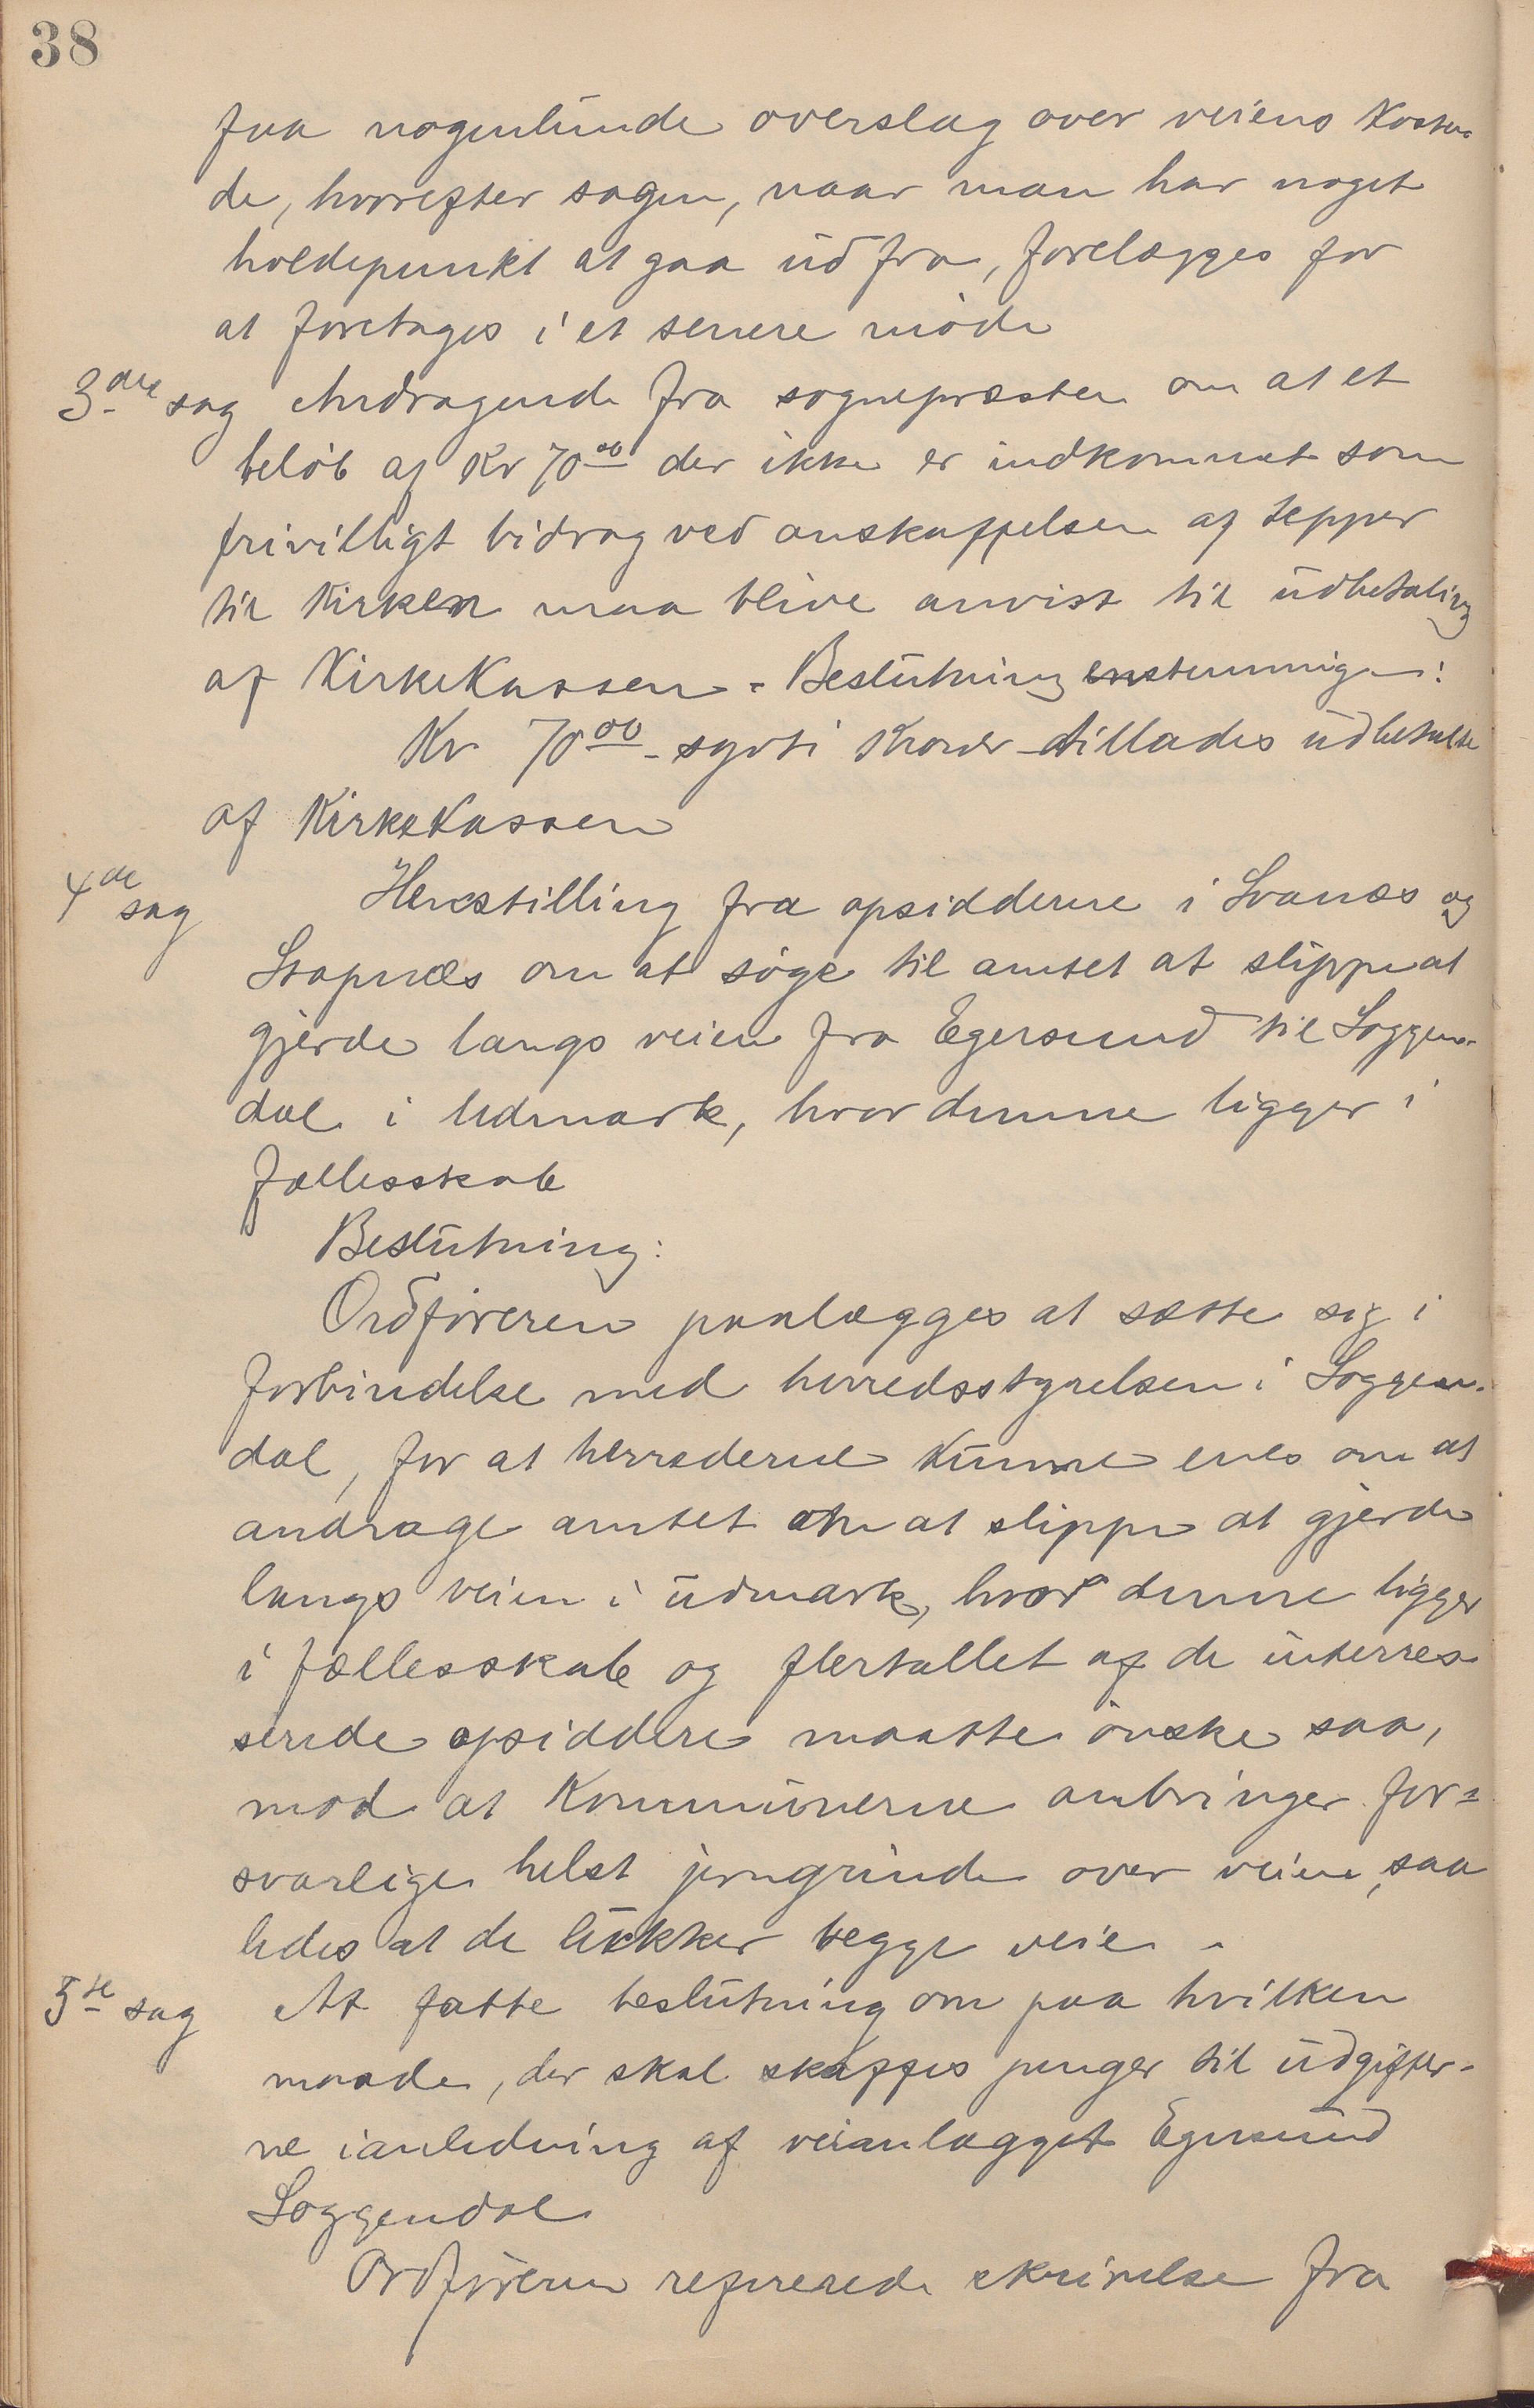 38
faa nogenlunde overslag over veiens Kosten-
de, hvorefter sagen, naar man har noget
holdepunkt at gaa ud fra, forelægges for
at foretages i et senere møde
3die sag Andragende fra sognepræsten om at et
beløb af Kr 70.00 der ikke er indkommet som
frivilligt bidrag ved anskaffelsen af tepper
til Kirken maa blive anvist til udbetaling
af KirkeKassen. - Beslutning enstemmig:
Kr 70.00 - sytti Kroner - tillades udbetalte
af KirkeKassen
4de sag Henstilling fra opsidderne i Svanæs og
Stapnæs om at søge til amtet at slippe at
gjerde langs veien fra Egersund til Soggen-
dal i Udmark, hvor denne ligger i
fællesskab
Beslutning:
Ordføreren paalægges at sætte sig i
forbindelse med herredsstyrelsen i Soggen-
dal, for at herrederne Kunne enes om at
andrage amtet om at slippe at gjerde
langs veien i udmark, hvor denne ligger
i fællesskab og flertallet af de interres-
serede opsiddere maatte ønske saa,
mod at Kommunerne anbringer for=
svarlige helst jerngrinde over veiene, saa
ledes at de lukker begge veie.
5te sag At fatte beslutning om paa hvilken
maade, der skal skaffes penger til udgifter-
ne i anledning af veianlægget Egersund
Soggendal
Ordføreren refererede skrivelse fra